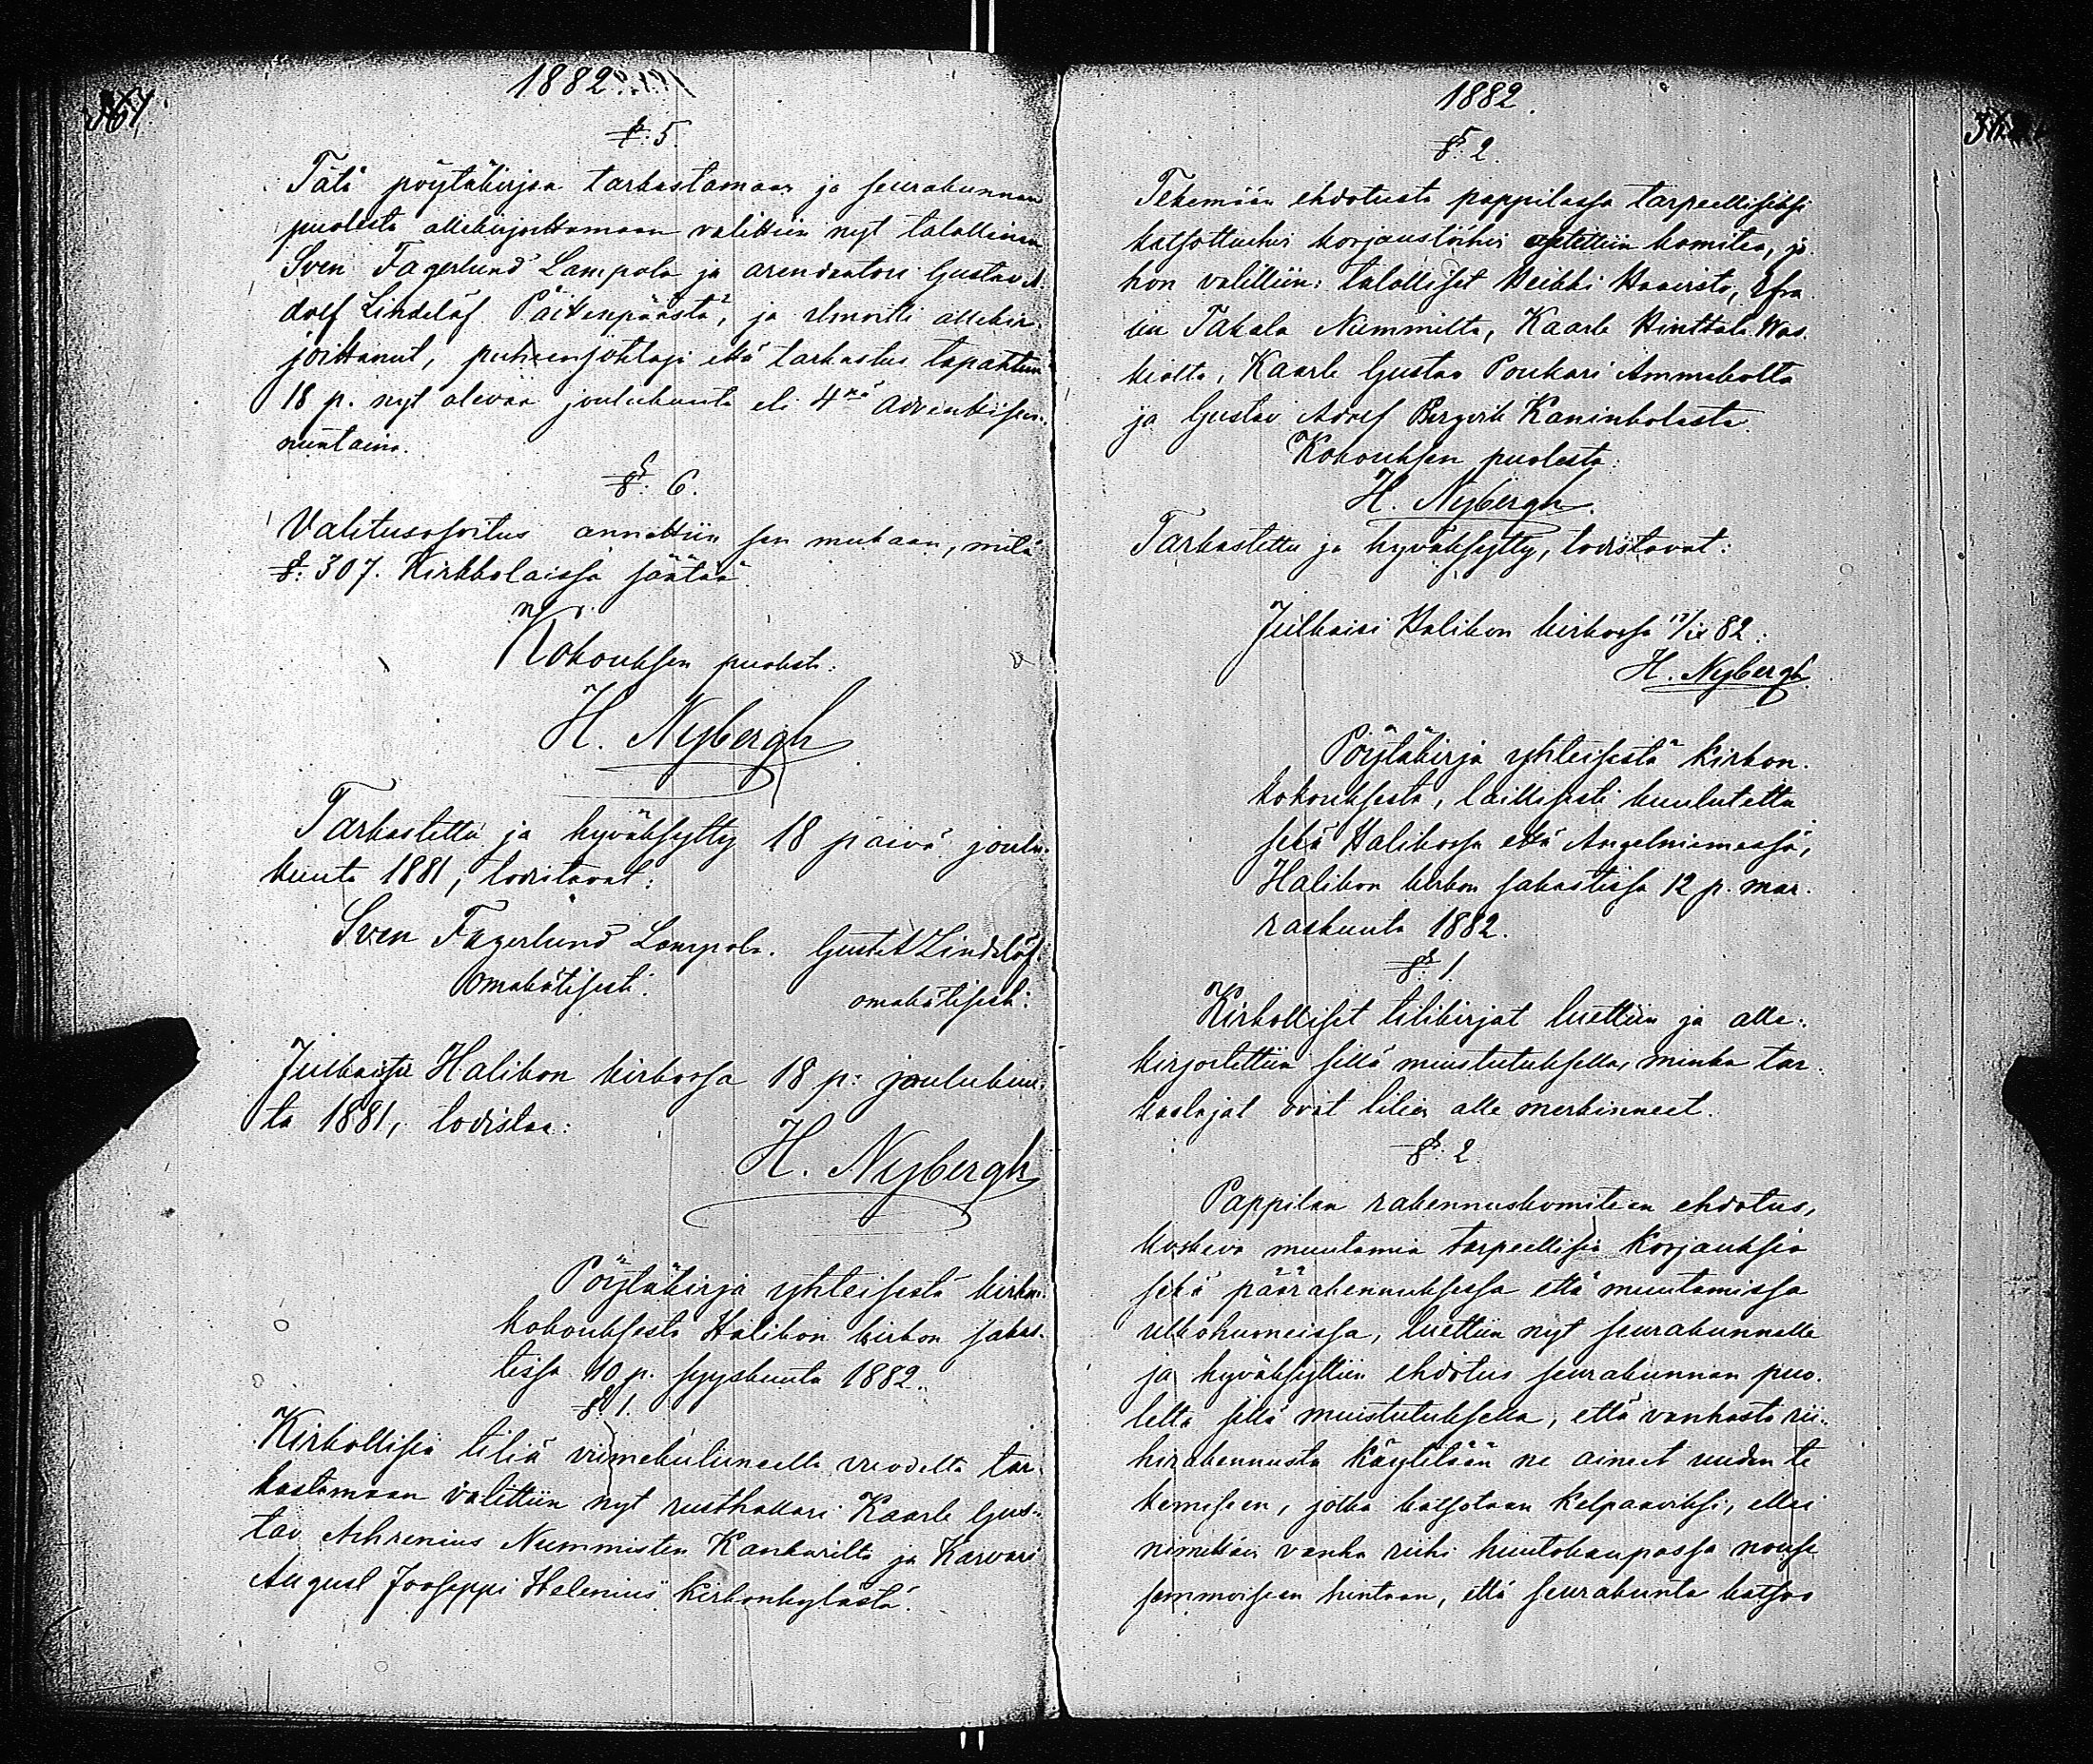 1882
§. 5.
Tätä pöytäkirjaa tarkastamaan ja seurakunnan
puolesta allekirjoittamaan valittiin nyt talollinen
Sven Fagerlund Lampola ja arendaatori Gustav A.
dolf Lindelöf Päitenpäästä, ja ilmoitti allekir-
joittanut, puheenjohtaja että tarkastus tapahtuu
18 p. nyt olevaa joulukuuta eli 4nä Adventtisun-
nuntaina.
§. 6.
Valitusosoitus annettiin sen mukaan, mitä
§. 307. Kirkkolaissa säätää.
Kokouksen puolest.
H. Nybergh
Tarkastettu ja hyväksytty 18 päivä joulu-
kuuta 1881, todistavat:
Sven Fagerlund Lampola. Gust. A Lindelöf.
omakätisesti. omakätisesti.
Julkaistu Halikon kirkossa 18 p: joulukuu-
ta 1881, todistaa:
H. Nybergh
Pöytäkirja yhteisestä kirkon-
kokouksesta Halikon kirkon sakas-
tissa 10 p. syyskuuta 1882.
§. 1.
Kirkollisia tiliä viimekuluneelta vuodelta tar-
kastamaan valittiin nyt rusthollari Kaarle Gus-
tav Arhrenius Nummisten Kankarilta ja Karvari
August Jooseppi Helenius Kirkonkylästä.
1882
§. 2.
Tekemään ehdotusta pappilassa tarpeellisiksi
katsottuihin korjaustöihin asetettiin komitea, jo-
hon valittiin: talolliset Heikki Haavisto, Efra-
im Takala Nummilta, Kaarle Hinttala Vas-
kiolta, Kaarle Gustav Poukari Ammakolta
ja Gustav Adolf Bergvik Kaninkolasta.
Kokouksen puolesta:
H. Nybergh.
Tarkastettu ja hyväksytty, todistavat:
Julkaisi Halikon kirkossa 17/IX 82.
H. Nybergh.
Pöytäkirja yhteisestä kirkon-
kokouksesta, laillisesti kuulutettu
sekä Halikossa että Angelniemessä,
Halikon kirkon sakastissa 12 p. mar-
raskuuta 1882.
§. 1.
Kirkolliset tilikirjat luettiin ja alle-
kirjoitettiin sillä muistutuksella, minka tar-
kastajat ovat tilien alle merkinneet.
§. 2.
Pappilan rakennuskomitean ehdotus,
koskeva muutamia tarpeellisia korjauksia
sekä päärakennuksessa että muutamissa
ulkohuoneissa, luettiin nyt seurakunnalle
ja hyväksyttiin ehdotus seurakunnan puo-
lelta sillä muistutuksella, että vanhasta rii-
hirakennusta käytetään ne aineet uuden te
kemiseen, jotka katsotaan kelpaaviksi, ellei
nimittäin vanha riihi huutokaupassa nouse
semmoiseen hintaan, että seurakunta katsoo